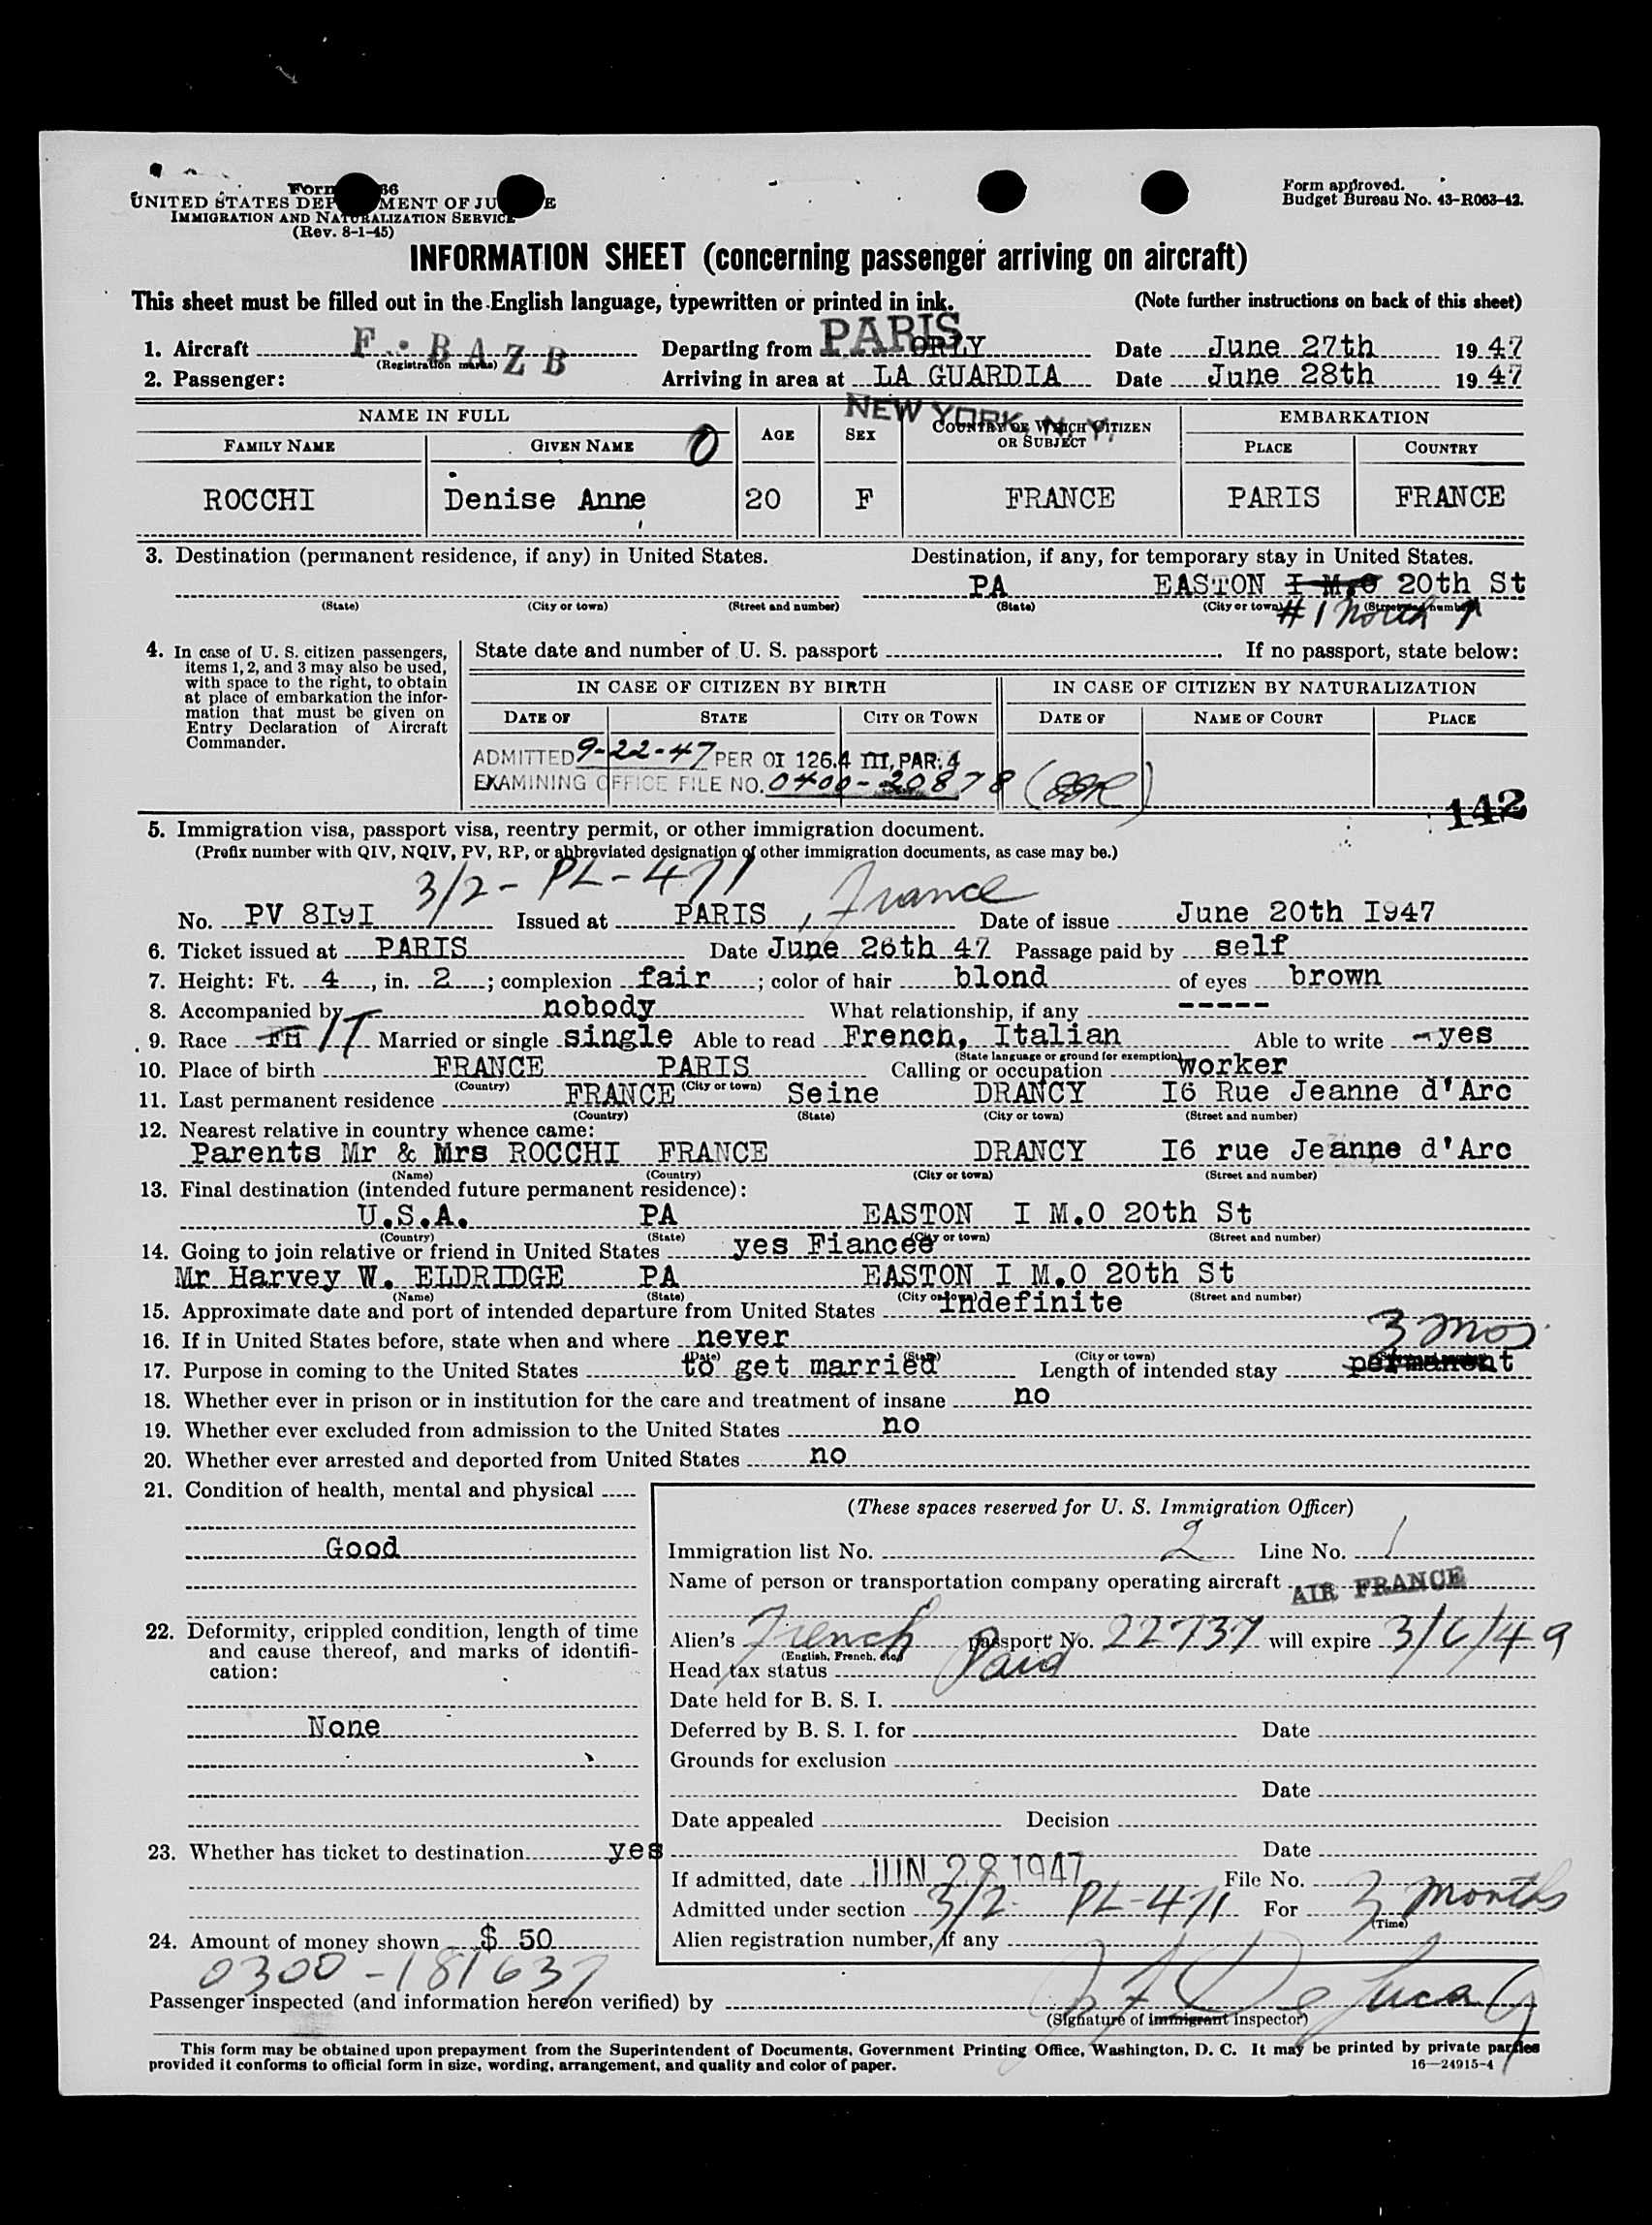 Form 66
UNITED STATES DEP MENT OF JU E
IMMIGRATION AND NATURALIZATION SERVICE
(Rev. 8-1-45)
Form approved.
Budget Bureau No. 43-R063-42.
INFORMATION SHEET (concerning passenger arriving on aircraft)
This sheet must be filled out in the English language, typewritten or printed in ink. (Note further instructions on back of this sheet)
1. Aircraft F · B A Z B (Registration marks) Departing from PARIS ORLY Date June 27th 19 47
2. Passenger: Arriving in area at LA GUARDIA Date June 28th 19 47
NEW YORK, N.Y.
NAME IN FULL EMBARKATION
FAMILY NAME GIVEN NAME 0 AGE SEX COUNTRY OF WHICH CITIZEN OR SUBJECT PLACE COUNTRY
ROCCHI Denise Anne 20 F FRANCE PARIS FRANCE
3. Destination (permanent residence, if any) in United States. Destination, if any, for temporary stay in United States.
PA EASTON I M.O 20th St
(State) (City or town) (Street and number) (State) (City or town) (Street and number)
# 1 North
4. In case of U. S. citizen passengers, items 1, 2, and 3 may also be used, with space to the right, to obtain at place of embarkation the information that must be given on Entry Declaration of Aircraft Commander.
State date and number of U. S. passport If no passport, state below:
IN CASE OF CITIZEN BY BIRTH IN CASE OF CITIZEN BY NATURALIZATION
DATE OF STATE CITY OR TOWN DATE OF NAME OF COURT PLACE
ADMITTED 9-22-47 PER OI 126.4 III, PAR. 4
EXAMINING OFFICE FILE NO. 0400-20878
142
5. Immigration visa, passport visa, reentry permit, or other immigration document.
(Prefix number with QIV, NQIV, PV, RP, or abbreviated designation of other immigration documents, as case may be.)
3/2 - PL - 471
No. PV 8I9I Issued at PARIS, France Date of issue June 20th I947
6. Ticket issued at PARIS Date June 26th 47 Passage paid by self
7. Height: Ft. 4, in. 2; complexion fair; color of hair blond of eyes brown
8. Accompanied by nobody What relationship, if any -----
9. Race FH IT Married or single single Able to read French, Italian Able to write - yes
(State language or ground for exemption)
10. Place of birth FRANCE PARIS Calling or occupation worker
(Country) (City or town)
11. Last permanent residence FRANCE Seine DRANCY I6 Rue Jeanne d'Arc
(Country) (State) (City or town) (Street and number)
12. Nearest relative in country whence came:
Parents Mr & Mrs ROCCHI FRANCE DRANCY I6 rue Jeanne d'Arc
(Name) (Country) (City or town) (Street and number)
13. Final destination (intended future permanent residence):
U.S.A. PA EASTON I M.O 20th St
(Country) (State) (City or town) (Street and number)
14. Going to join relative or friend in United States yes Fiancee
Mr Harvey W. ELDRIDGE PA EASTON I M.O 20th St
(Name) (State) (City or town) (Street and number)
15. Approximate date and port of intended departure from United States indefinite
16. If in United States before, state when and where never
(Date) (State) (City or town)
3 mos.
17. Purpose in coming to the United States to get married Length of intended stay permanent
18. Whether ever in prison or in institution for the care and treatment of insane no
19. Whether ever excluded from admission to the United States no
20. Whether ever arrested and deported from United States no
21. Condition of health, mental and physical
Good
22. Deformity, crippled condition, length of time and cause thereof, and marks of identification:
None
23. Whether has ticket to destination yes
24. Amount of money shown $ 50
0300-181637
(These spaces reserved for U. S. Immigration Officer)
Immigration list No. 2 Line No. 1
Name of person or transportation company operating aircraft AIR FRANCE
Alien's French passport No. 22737 will expire 3/6/49
(English, French, etc.)
Head tax status Paid
Date held for B. S. I.
Deferred by B. S. I. for Date
Grounds for exclusion
Date
Date appealed Decision
Date
If admitted, date JUN 28 1947 File No.
Admitted under section 3/2 - PL-471 For 3 months
(Time)
Alien registration number, if any
Passenger inspected (and information hereon verified) by
(Signature of immigrant inspector)
This form may be obtained upon prepayment from the Superintendent of Documents, Government Printing Office, Washington, D. C. It may be printed by private parties
provided it conforms to official form in size, wording, arrangement, and quality and color of paper. 16—24915-4